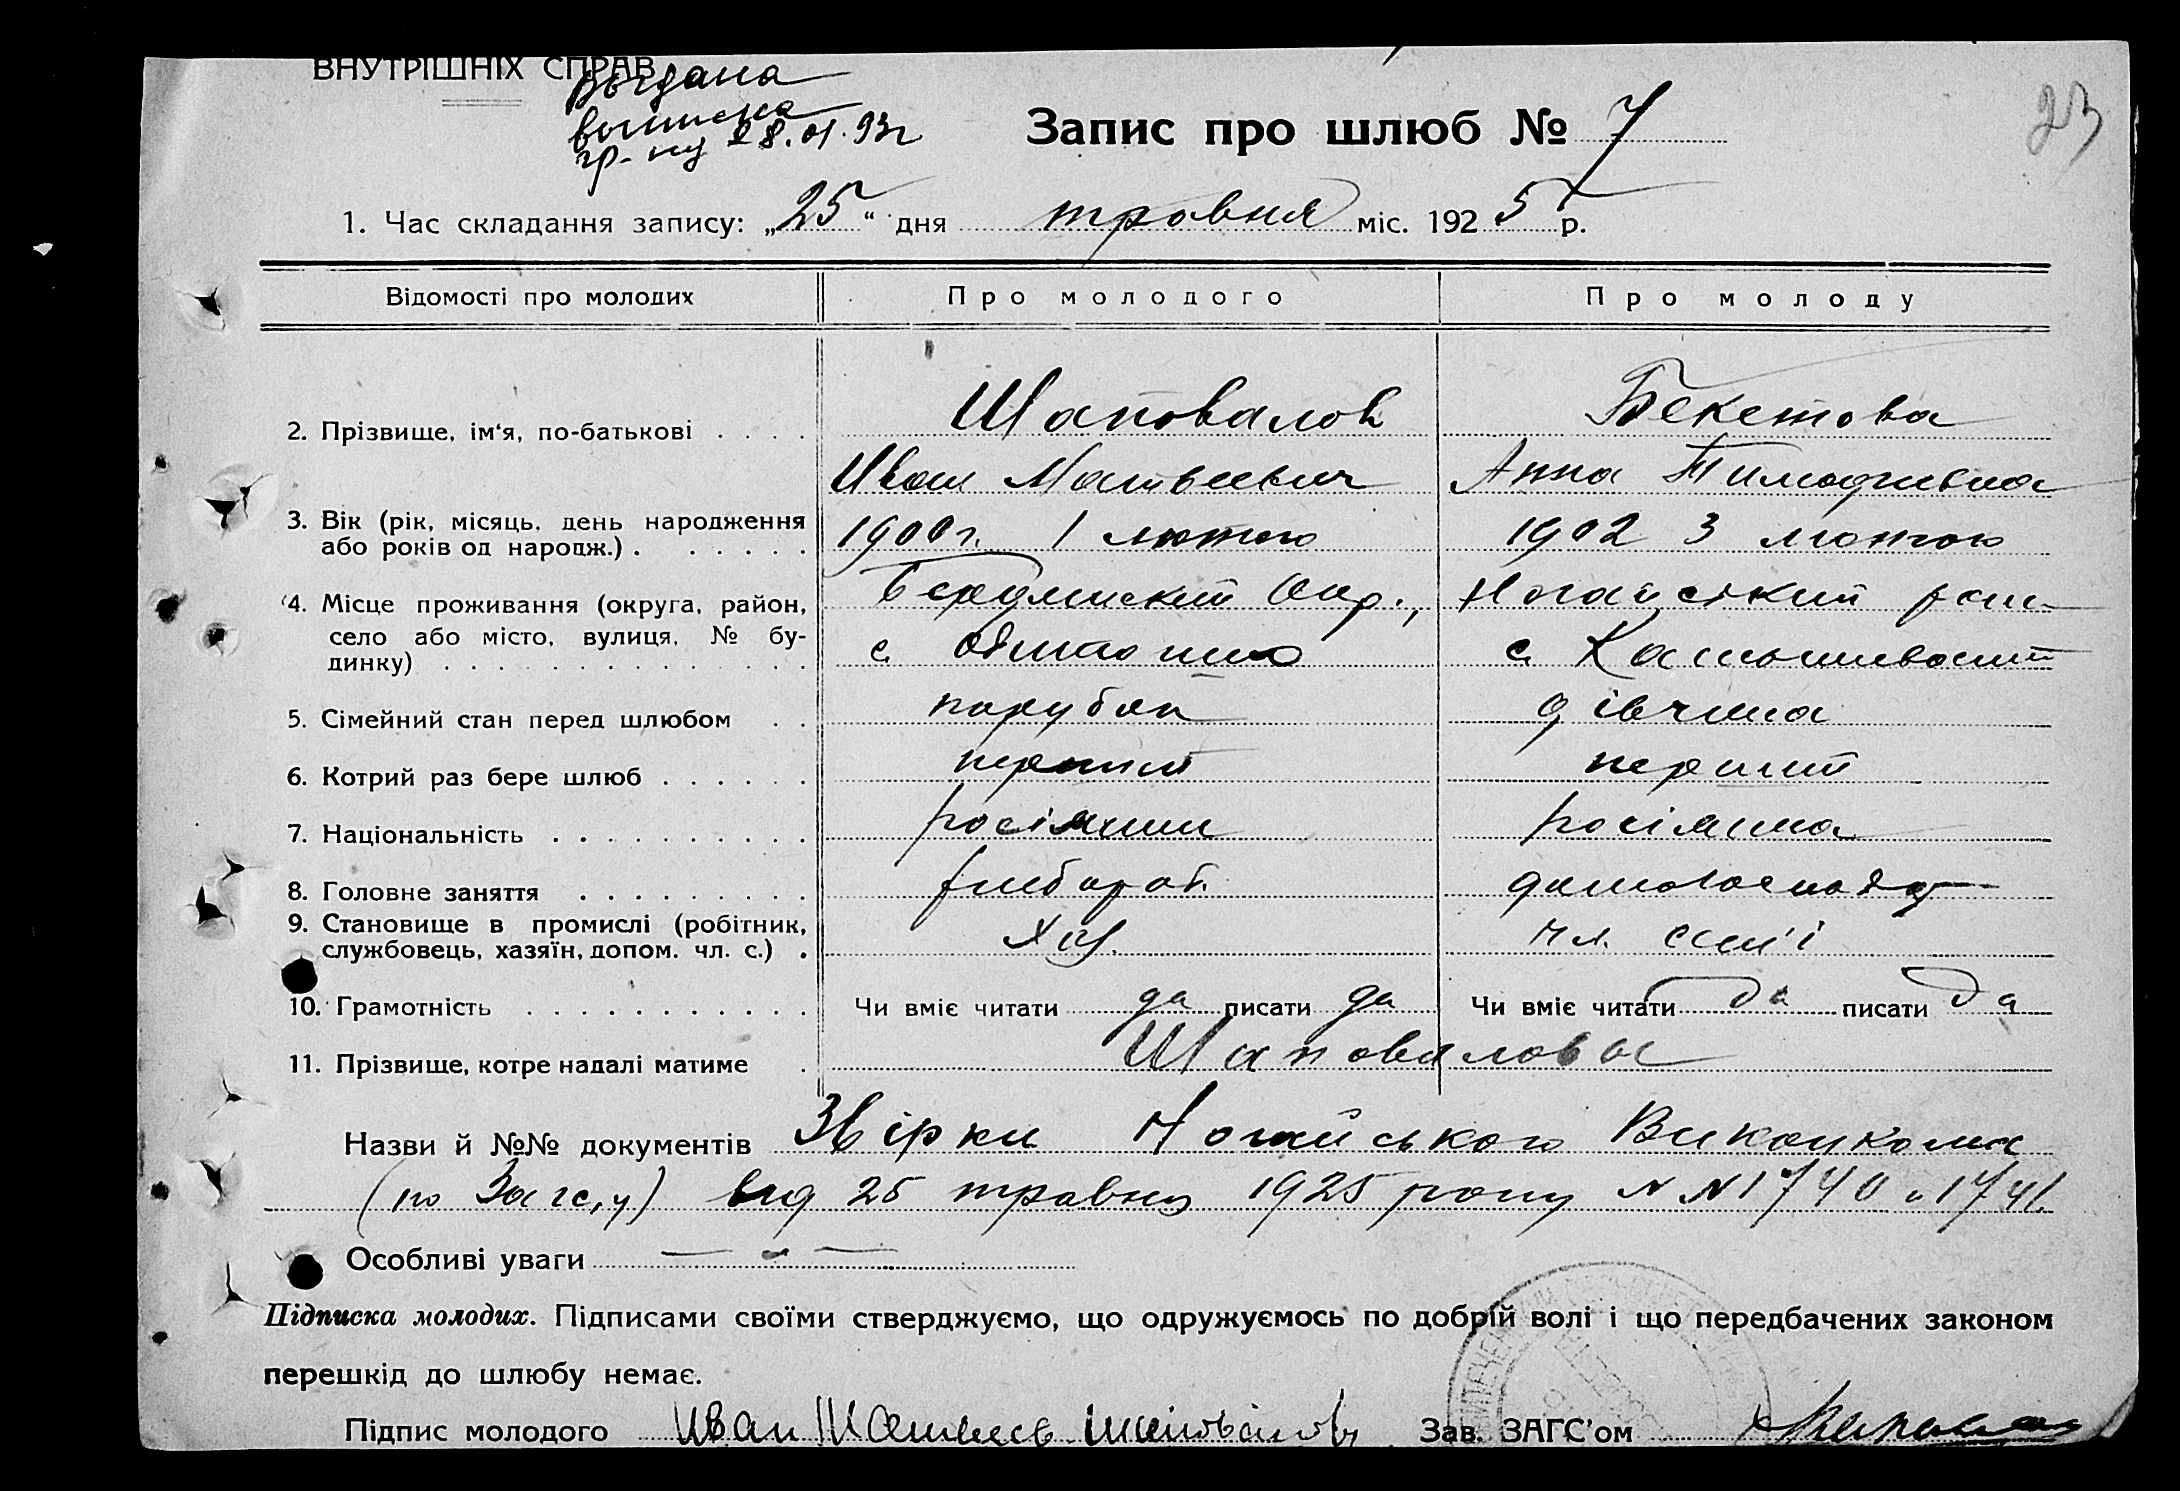 ВНУТРІШНІХ СПРАВ
Выдана
выписка
гр-ну 28.01.93г
Запис про шлюб № 7
23
1. Час складання запису: „25“ дня травня міс. 1925 р.
Відомості про молодих Про молодого Про молоду
2. Прізвище, ім'я, по-батькові . . . . Шаповалов Бекетова
Иван Матвеевич Анна Тимофиевна
3. Вік (рік, місяць, день народження
або років од народж.) . . . . . . 1900 г. 1 лютого 1902 3 лютого
4. Місце проживання (округа, район, Бердянский Окр., Ногайський рай-
село або місто, вулиця, № бу-
динку) . . . . . . . . . . . . . . с. с.
5. Сімейний стан перед шлюбом . . парубок дівчина
6. Котрий раз бере шлюб . . . . . . перший перший
7. Національність . . . . . . . . . . росіянин росіянка
8. Головне заняття . . . . . . . . .
9. Становище в промислі (робітник,
службовець, хазяїн, допом. чл. с.) . Хаз. чл. сем'ї
10. Грамотність . . . . . . . . . . . . Чи вміє читати да писати да Чи вміє читати да писати да
11. Прізвище, котре надалі матиме . Шаповаловы
Назви й №№ документів Звірки Ногайського Виконкома
(по Загс,у) від 25 травня 1925 року NN 1740 и 1741.
Особливі уваги
Підписка молодих. Підписами своїми стверджуємо, що одружуємось по добрій волі і що передбачених законом
перешкід до шлюбу немає.
Підпис молодого Иван Шаповалов Зав. ЗАГС'ом